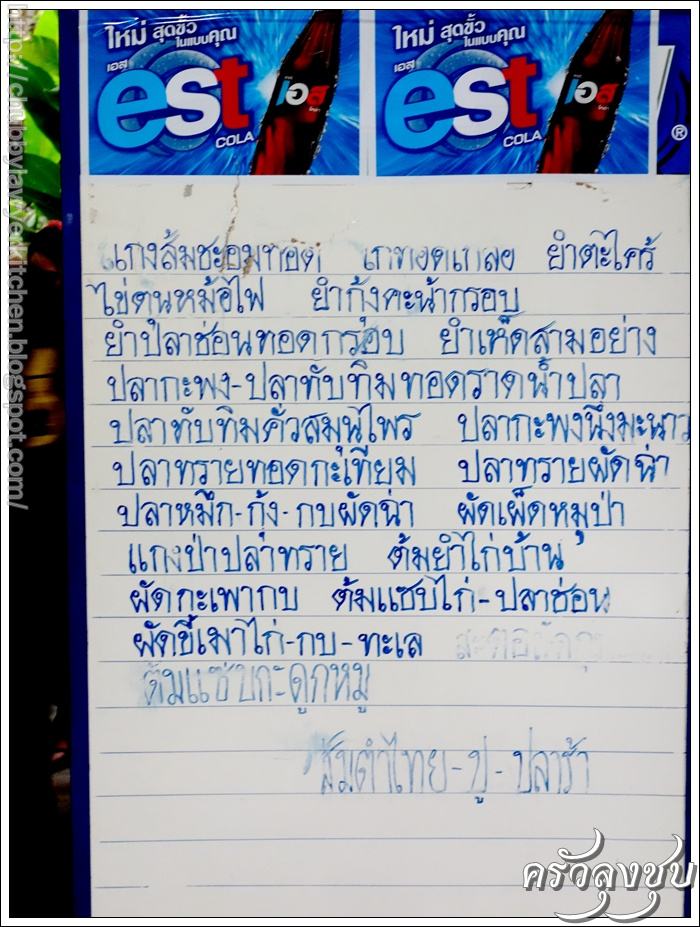 ใหม่ สุดขั้ว ในแบบคุณ
เอส
est
COLA
เอส
ใหม่ สุดขั้ว ในแบบคุณ
เอส
est
COLA
เอส
®
http://chubbylawyerkitchen.blogspot.com/
แกงส้มชะอมทอด ยำตะไคร้
ไข่ตุนหม้อไฟ ยำกุ้งคะน้ากรอบ
ยำปลาช่อนทอดกรอบ ยำเห็ดสามอย่าง
ปลากะพง-ปลาทับทิมทอดราดน้ำปลา
ปลาทับทิมคั่วสมุนไพร ปลากะพงนึ่งมะนาว
ปลาทรายทอดกะเทียม ปลาทรายผัดฉ่า
ปลาหมึก-กุ้ง-กบผัดฉ่า ผัดเผ็ดหมูป่า
แกงป่าปลาทราย ต้มยำไก่บ้าน
ผัดกะเพากบ ต้มแซบไก่-ปลาช่อน
ผัดขี้เมาไก่-กบ-ทะเล
ต้มแซบกะดูกหมู
ส้มตำไทย-ปู-ปลาร้า
ครัวลุงชุบ